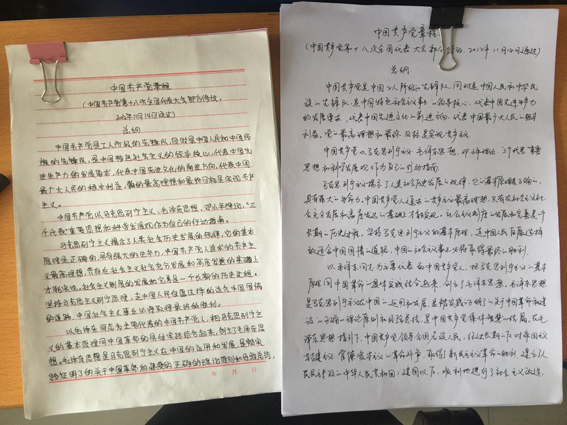 中国共产党章程
(中国共产党第十八次全国代表大会部分修改,
2012年11月14日通过)
总纲
中国共产党是工人阶级的先锋队,同时是中国人民和中华民
族的先锋队,是中国特色社会主义的领导核心,代表中国先
进生产力的发展要求,代表中国先进文化的前进方向,代表中国
最广大人民的根本利益。党的最高理想和最终目标是实现共产
主义。
中国共产党以马克思列宁主义、毛泽东思想、邓小平理论、"三
个代表"重要思想和科学发展观作为自己的行动指南。
马克思列宁主义揭示了人类社会历史发展的规律,它的基本
原理是正确的,具有强大的生命力。中国共产党人追求的共产主
义最高理想,只有在社会主义社会充分发展和高度发达的基础上
才能实现。社会主义制度的发展和完善是一个长期的历史过程。
坚持马克思主义列宁原理,走中国人民自愿选择的适合中国国情
的道路,中国社会主义事业必将取得最终的胜利。
以毛泽东同志为主要代表的中国共产党人,把马克思列宁主
义的基本原理同中国革命的具体实践结合起来,创立了毛泽东思
想。毛泽东思想是马克思列宁主义在中国的运用和发展,是被实
践证明了的关于中国革命和建设的正确的理论原则和经验总结,
年 月 日
中国共产党章程
(中国共产党第十八次全国代表大会部分修改,2012年11月14日通过)
总纲
中国共产党是中国工人阶级的先锋队,同时是中国人民和中华民
族的先锋队,是中国特色社会主义事业的领导核心,代表中国先进生产力
的发展要求,代表中国先进文化的前进方向,代表中国最广大人民的根本
利益。党的最高理想和最终目标是实现共产主义
中国共产党以马克思列宁主义、毛泽东思想、邓小平理论、"三个代表"重要
思想和科学发展观作为自己的行动指南
马克思列宁主义揭示了人类社会历史发展的规律,它的基本原理是正确的,
具有强大的生命力。中国共产党人追求的共产主义最高理想,只有在社会主义社
会充分发展和高度发达的基础上才能实现。社会主义制度的发展和完善是一个
长期的历史过程。坚持马克思列宁主义的基本原理,走中国人民自愿选择
的适合中国国情的道路,中国的社会主义事业必将取得最终的胜利
以毛泽东同志为主要代表的中国共产党人,把马克思列宁主义的基本
原理同中国革命的具体实践结合起来,创立了毛泽东思想。毛泽东思想
是马克思列宁主义在中国的运用和发展,是被实践证明了的关于中国革命和建
设的正确的理论原则和经验总结,是中国共产党集体智慧的结晶。在毛
泽东思想指引下,中国共产党领导全国各族人民,经过长期的反对帝国主